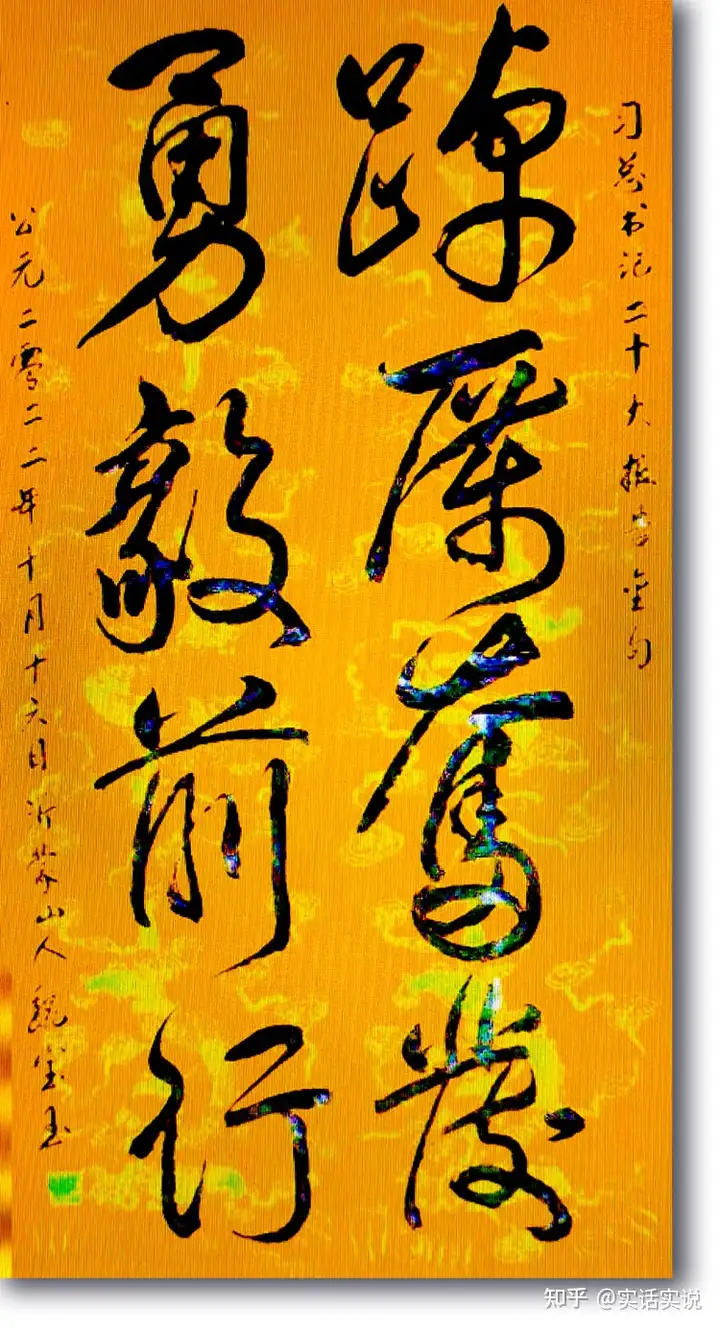 习总书记二十大报告金句
踔厉奋发
勇毅前行
公元二零二二年十月十六日沂蒙山人魏宝玉
知乎 @实话实说